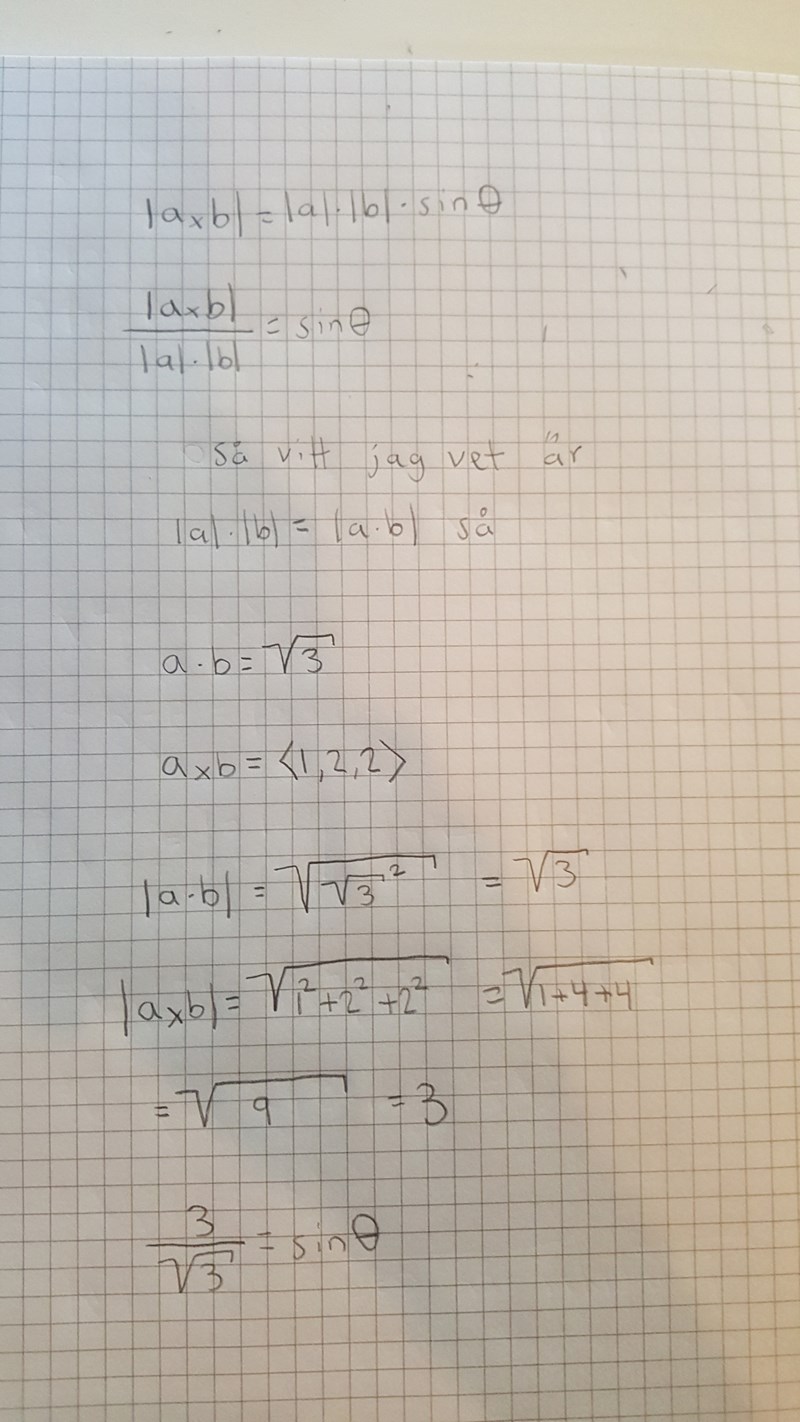 |a×b| = |a|·|b|·sinθ
|a×b|
= sinθ
|a|·|b|
så vitt jag vet är
|a|·|b| = |a·b| så
a·b = √3
a×b = ⟨1,2,2⟩
|a·b| = √(√3²) = √3
|a×b| = √(1²+2²+2²) = √(1+4+4)
= √9 = 3
3
= sinθ
√3